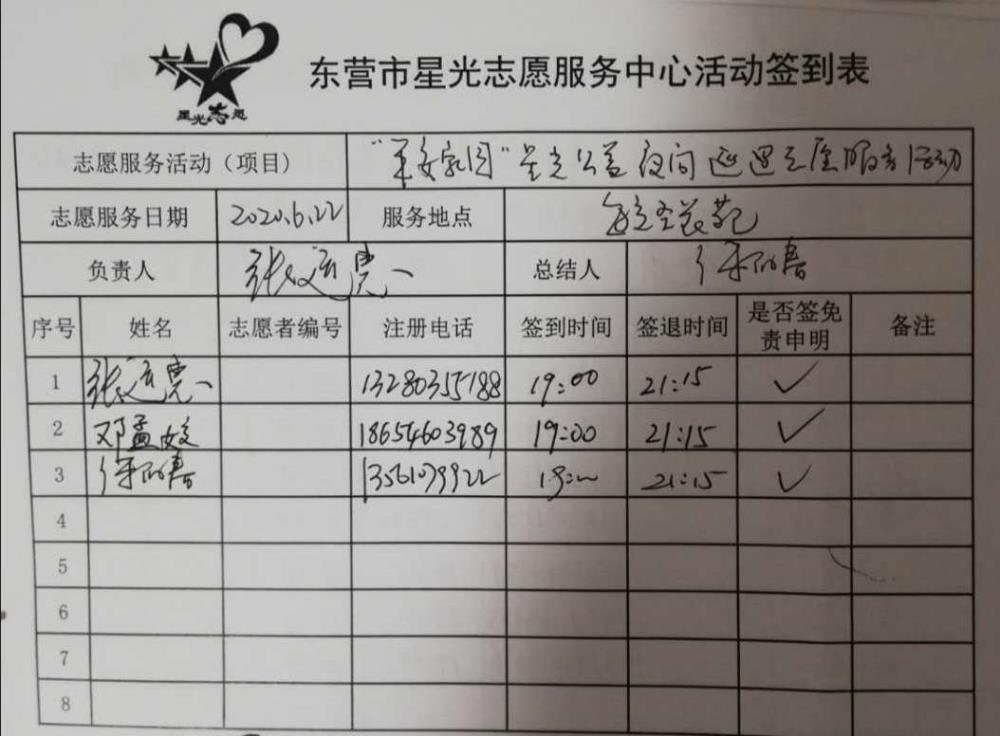 星光志愿
东营市星光志愿服务中心活动签到表
志愿服务活动（项目） “平安家园”星光公益夜间巡逻志愿服务活动
志愿服务日期 2020.6.22 服务地点
负责人 总结人
序号 姓名 志愿者编号 注册电话 签到时间 签退时间 是否签免责申明 备注
1 13280355188 19:00 21:15 ✓
2 邓孟姣 18654603989 19:00 21:15 ✓
3 13561079922 19:00 21:15 ✓
4
5
6
7
8